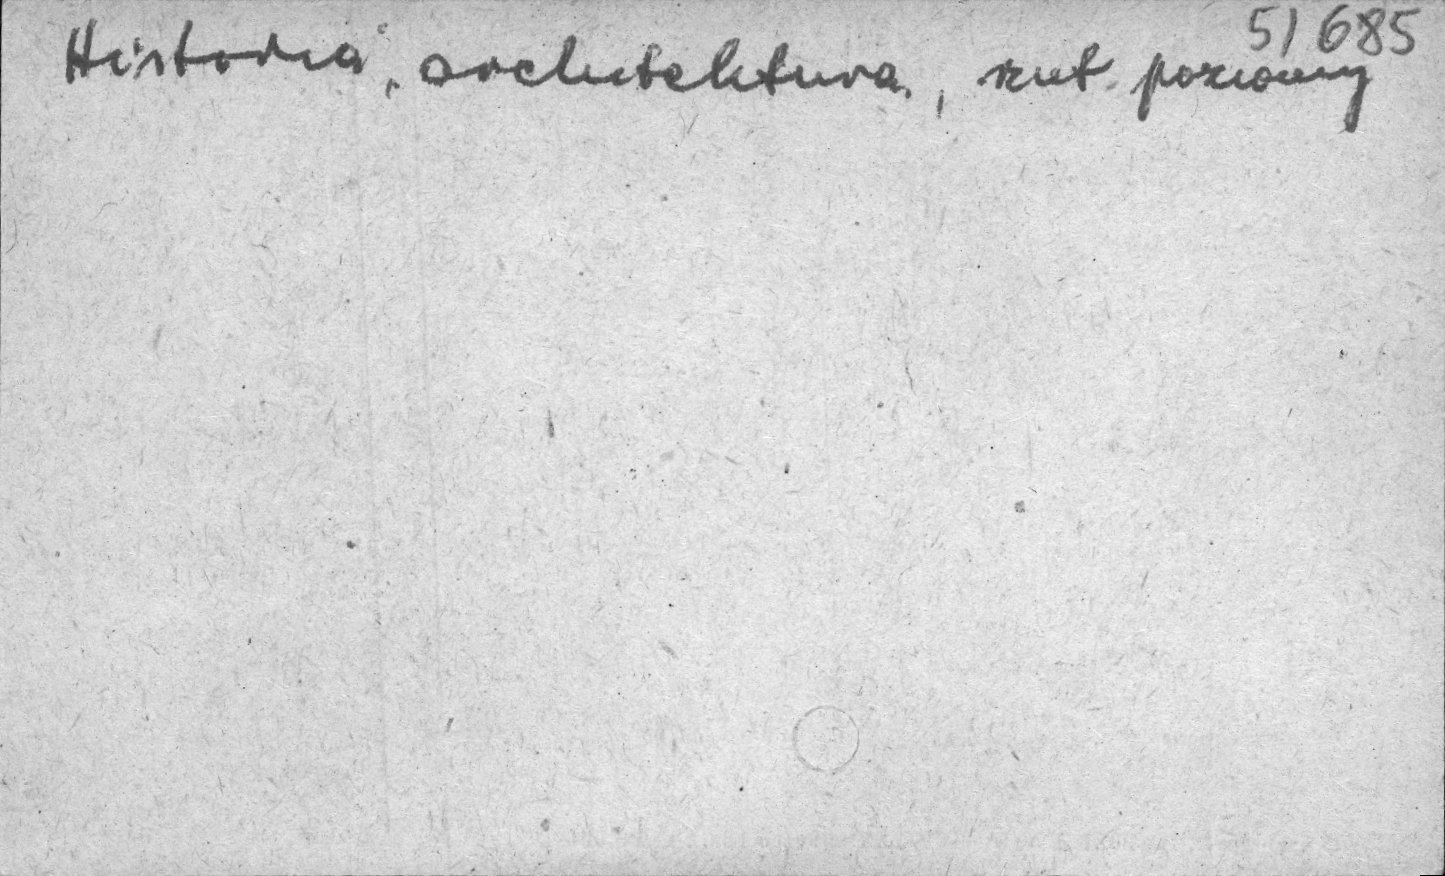 51685
Historia, architektura, rzut poziomy